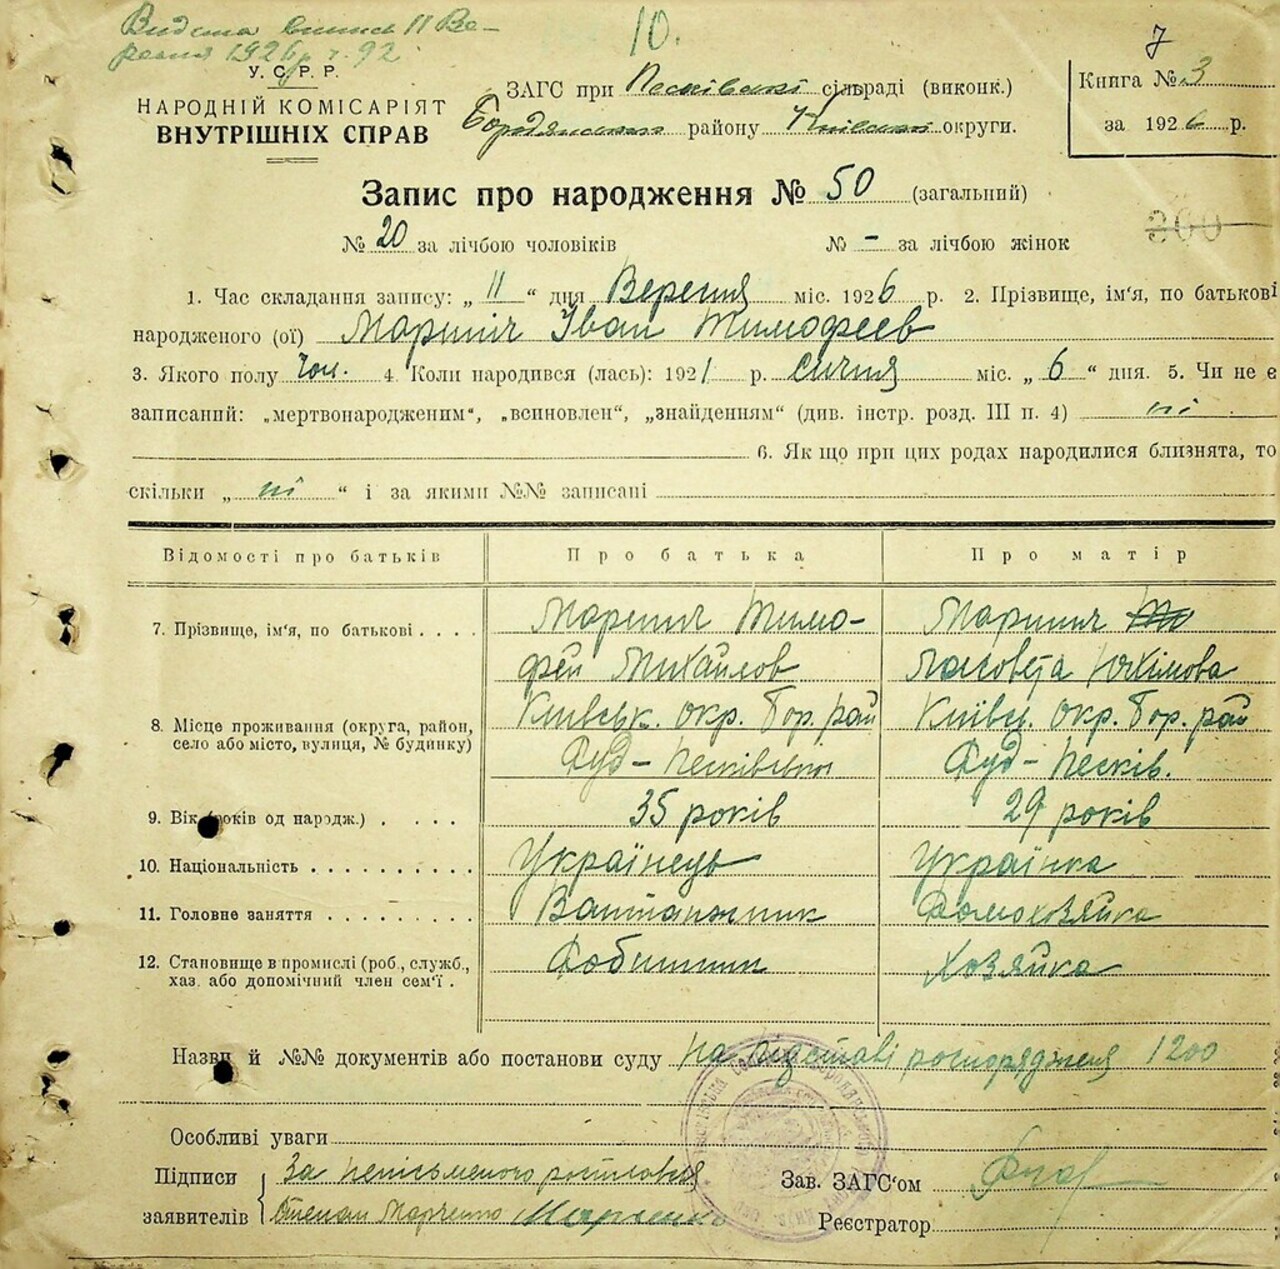 Видана випись 11 Ве-
ресня 1926 р. ч. 92
10.
7
У.С.Р.Р.
НАРОДНІЙ КОМІСАРІЯТ
ВНУТРІШНІХ СПРАВ
ЗАГС при Песківські сільраді (виконк.)
Бородянського району Київської округи.
Книга № 3
за 1926 р.
Запис про народження № 50 (загальний)
360
№ 20 за лічбою чоловіків № - за лічбою жінок
1. Час складання запису: „ 11 “ дня Вересня міс. 1926 р. 2. Прізвище, ім'я, по батькові
народженого (ої) Мартич Іван Тимофеев
3. Якого полу чол. 4. Коли народився (лась): 1921 р. січня міс. „ 6 “ дня. 5. Чи не є
записаний: „мертвонародженим“, „всиновлен“, „знайденням“ (див. інстр. розд. III п. 4) ні
6. Як що при цих родах народилися близнята, то
скільки „ ні “ і за якими №№ записані
Відомості про батьків Про батька Про матір
7. Прізвище, ім'я, по батькові . . . . Мартич Тимо- Мартич
фей Михайлов Лисовета Юхімова
8. Місце проживання (округа, район, Київськ. окр. Бор. рай Київс. Окр. Бор. рай
село або місто, вулиця, № будинку) Буд - Песківської Буд - Песків.
9. Вік (років од народж.) . . . . 35 років 29 років
10. Національність . . . . . . . . . . Українець Українка
11. Головне заняття . . . . . . . . . Домохозяйка
12. Становище в промислі (роб., служб., Хозяйка
хаз. або допомічний член сем'ї .
Назви й №№ документів або постанови суду На підставі роспорядженя 1200
Особливі уваги
Підписи За непісьменого росписався Зав. ЗАГС'ом
заявителів Степан Марченко Марченко Реєстратор